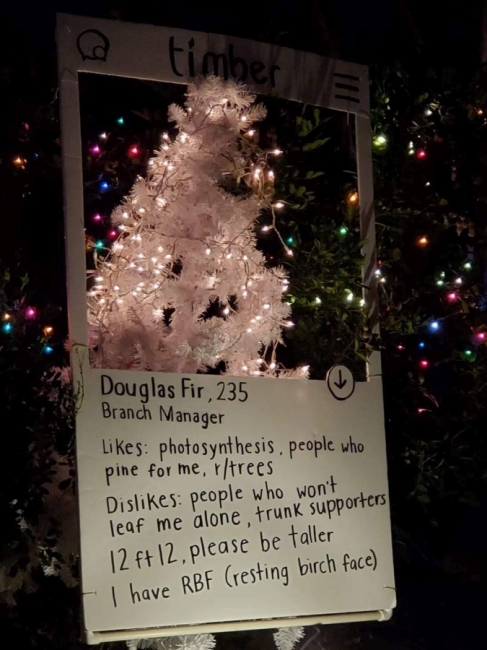 timber
Douglas Fir, 235
Branch Manager
Likes: photosynthesis, people who
pine for me, r/trees
Dislikes: people who won't
leaf me alone, trunk supporters
12 ft 12, please be taller
I have RBF (resting birch face)